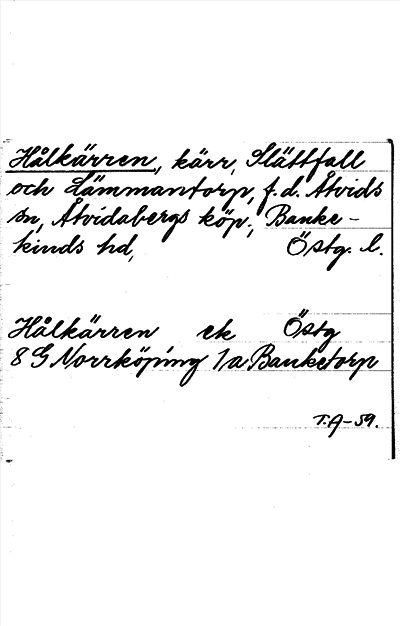 Hålkärren, kärr, Slättfall
och Lämmantorp, f.d. Åtvids
sn, Åtvidabergs köp., Banke-
kinds hd, Östg. l.
Hålkärren ek Östg
8 G Norrköping 1 a Banketorp
T.A-59.